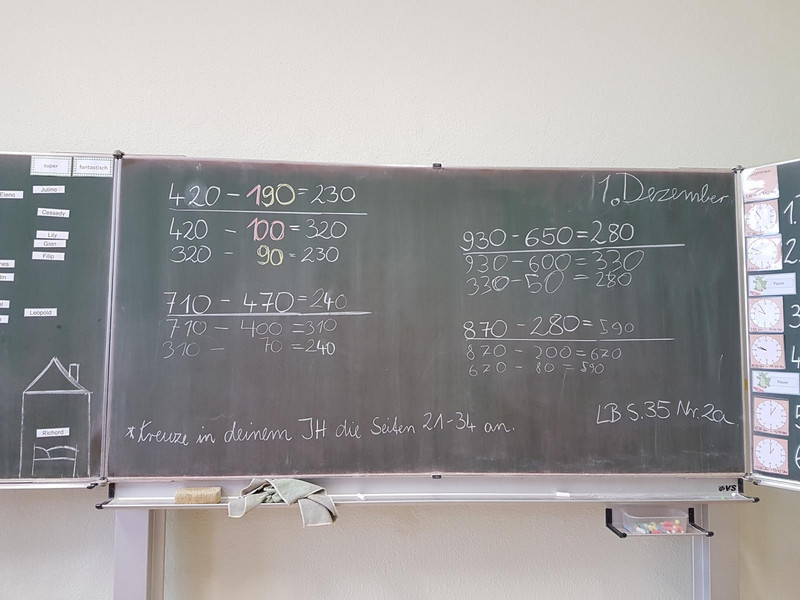 super fantastisch
Juline
Cessady
Lily
Gian
Filip
Leopold
Richard
420 - 190 = 230
420 - 100 = 320
320 - 90 = 230
710 - 470 = 240
710 - 400 = 310
310 - 70 = 240
*Kreuze in deinem JH die Seiten 21-34 an.
1. Dezember
930 - 650 = 280
930 - 600 = 330
330 - 50 = 280
870 - 280 = 590
870 - 200 = 670
670 - 80 = 590
LB S. 35 Nr. 2a
VS
1.
2.
3
4
5
6